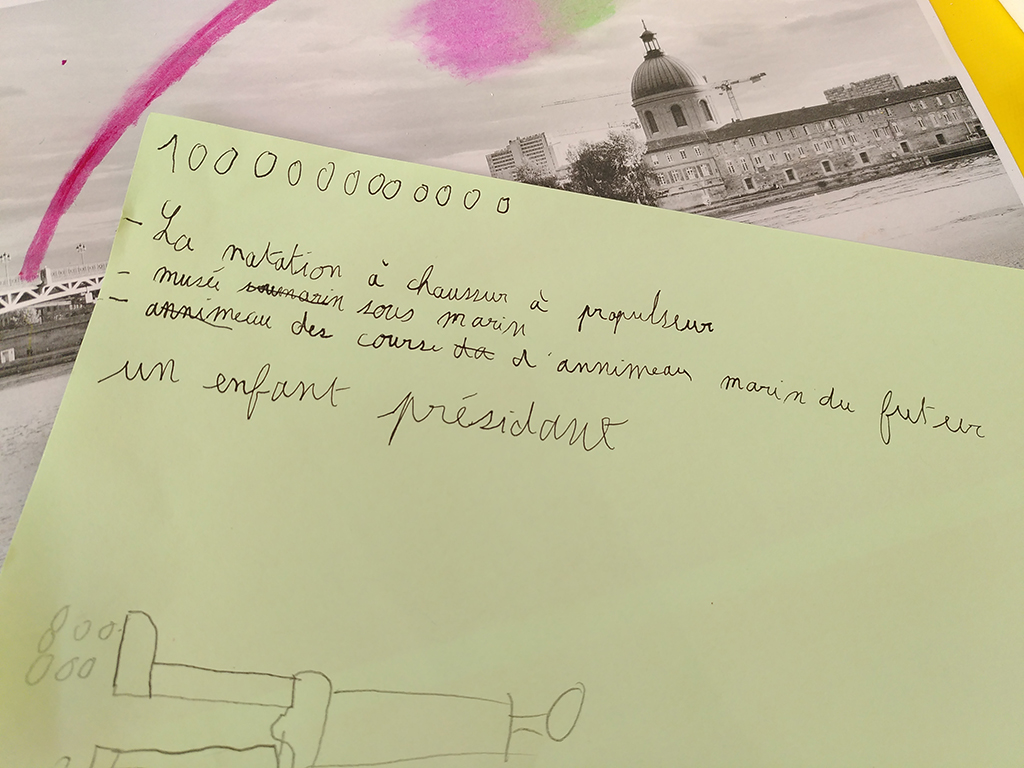 1000000000000
- La natation à chaussur à propulseur
- musée soumarin sous marin
- annimeau des course da d'annimeau marin du futeur
un enfant présidant